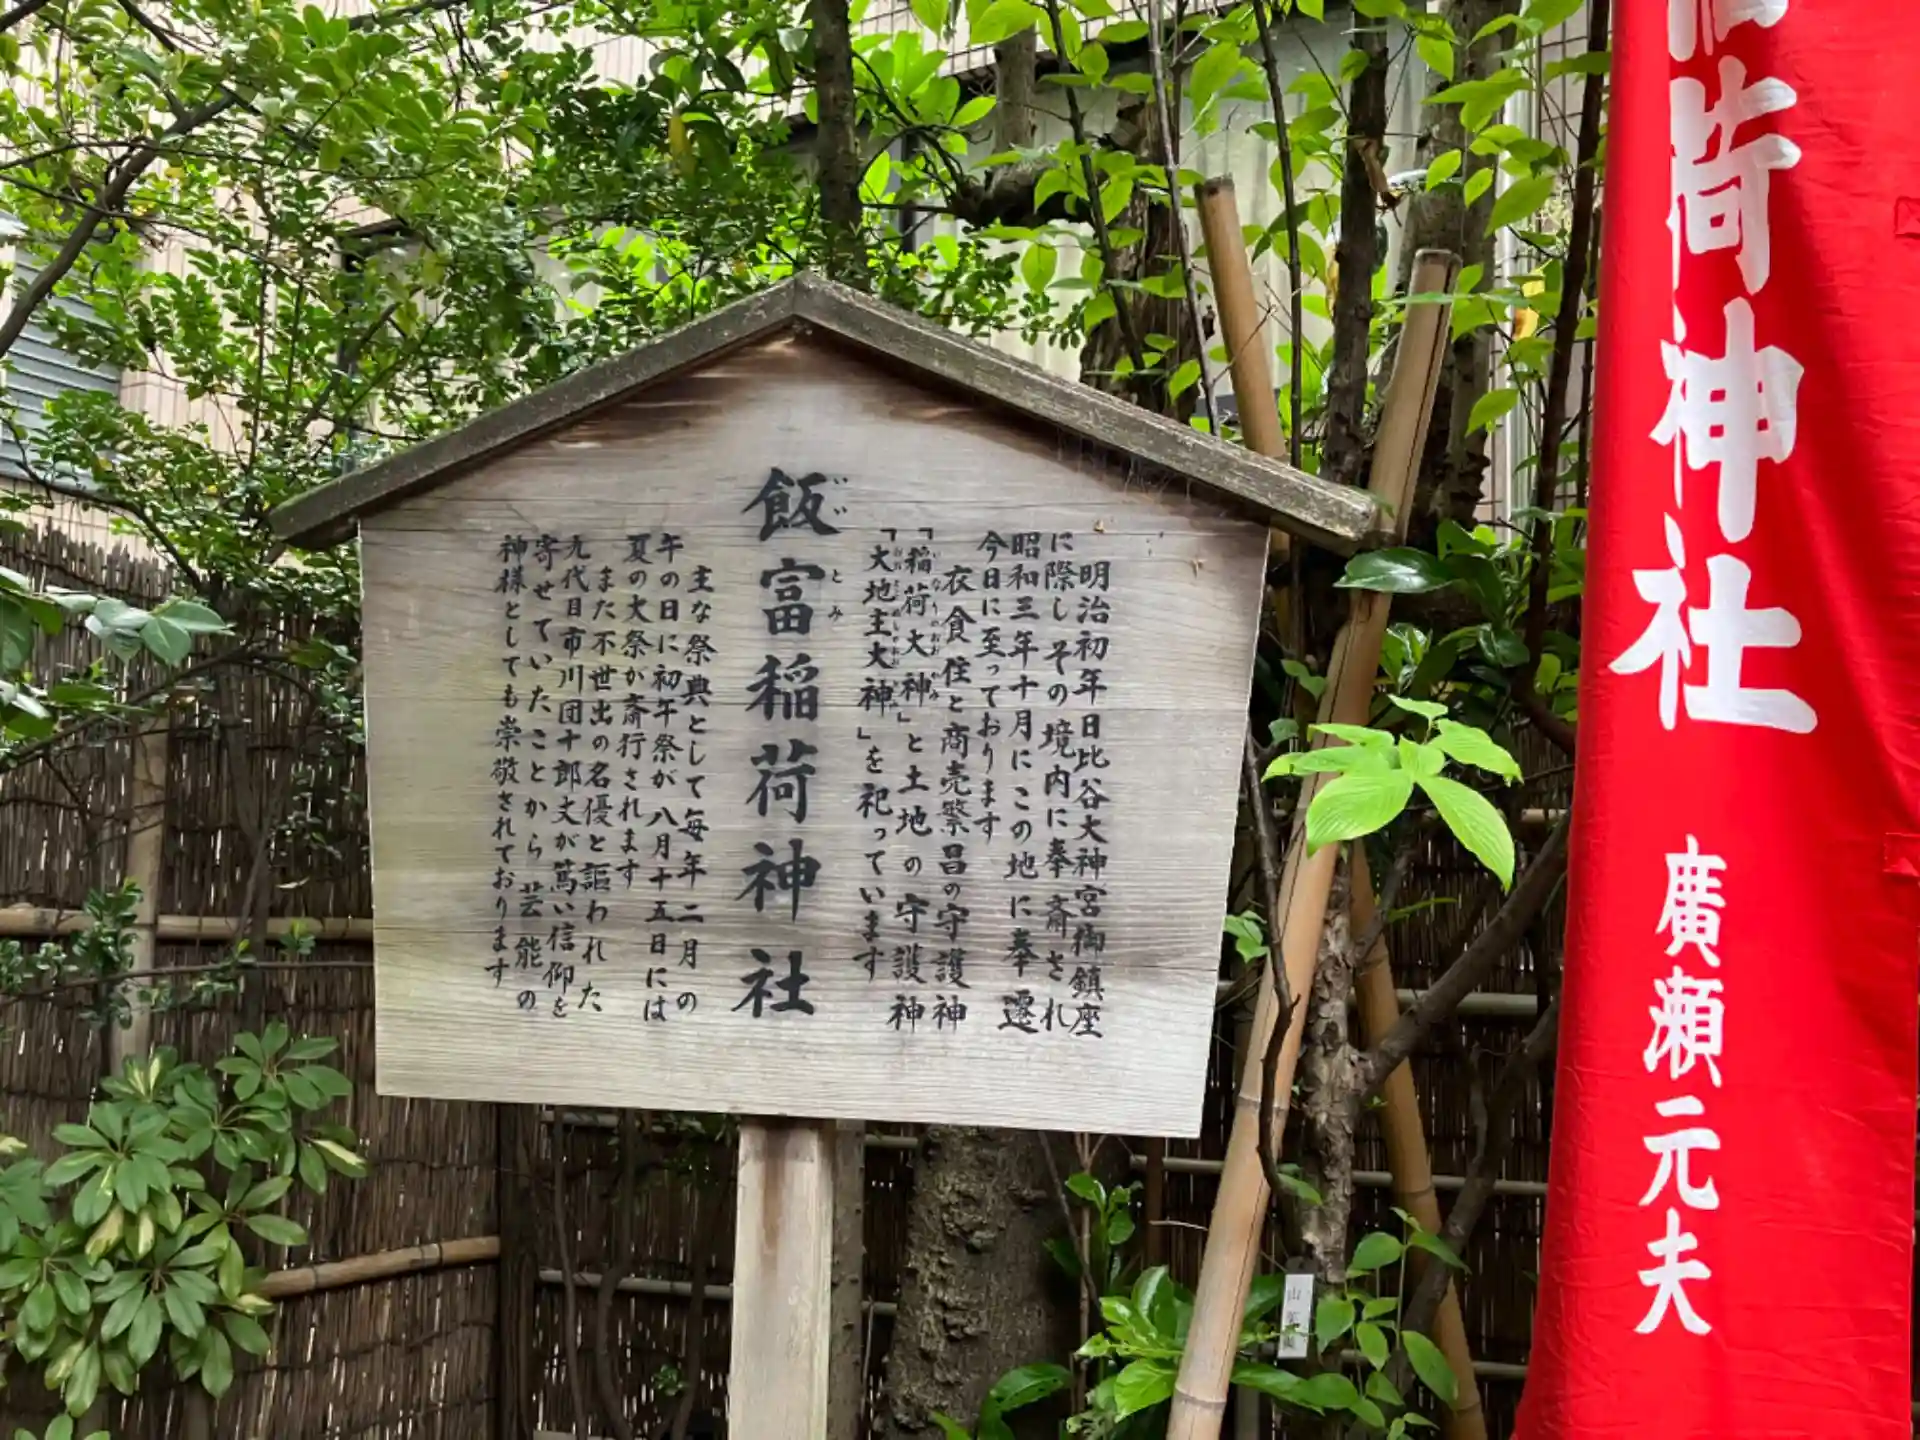 明治初年日比谷大神宮御鎮座
に際しその境内に奉斎され
昭和三年十月にこの地に奉遷
今日に至っております
衣食住と商売繁昌の守護神
「稲荷大神」と土地の守護神
いなりのおおかみ
「大地主大神」を祀っています
おおとこぬしのおおかみ
飯富稲荷神社
いいとみ
主な祭典として毎年二月の
午の日に初午祭が八月十五日には
夏の大祭が斎行されます
また不世出の名優と謳われた
九代目市川団十郎丈が篤い信仰を
寄せていたことから芸能の
神様としても崇敬されております
荷神社
廣瀬元夫